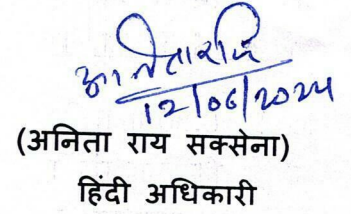 अनिता राय
12/06/2024
(अनिता राय सक्सेना)
हिंदी अधिकारी